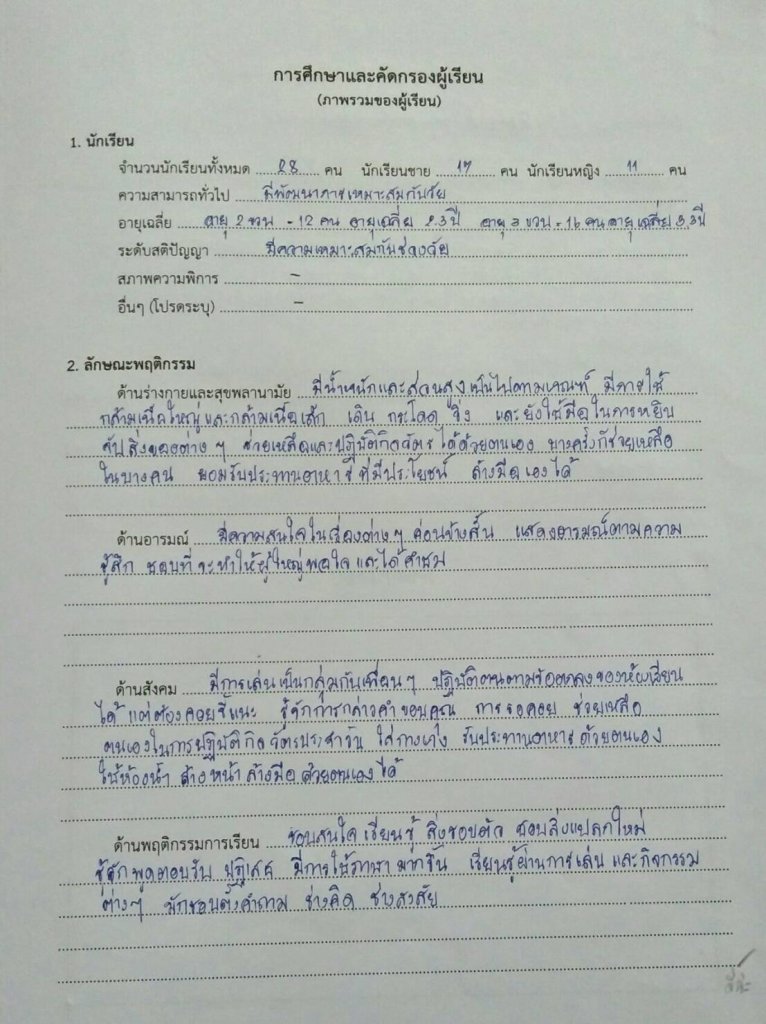 การศึกษาและคัดกรองผู้เรียน
(ภาพรวมของผู้เรียน)
1. นักเรียน
จำนวนนักเรียนทั้งหมด 28 คน นักเรียนชาย 17 คน นักเรียนหญิง 11 คน
ความสามารถทั่วไป มีพัฒนาการเหมาะสมกับวัย
อายุเฉลี่ย อายุ 2 ขวบ - 12 คน อายุเฉลี่ย 2.3 ปี อายุ 3 ขวบ - 16 คน อายุเฉลี่ย 3.3 ปี
ระดับสติปัญญา มีความเหมาะสมกับช่วงวัย
สภาพความพิการ -
อื่นๆ (โปรดระบุ) -
2. ลักษณะพฤติกรรม
ด้านร่างกายและสุขพลานามัย มีน้ำหนักและส่วนสูงเป็นไปตามเกณฑ์ มีการใช้
กล้ามเนื้อใหญ่และกล้ามเนื้อเล็ก เดิน กระโดด วิ่ง และยังใช้มือในการหยิบ
จับสิ่งของต่าง ๆ ช่วยเหลือและปฏิบัติกิจวัตรได้ด้วยตนเอง บางครั้งก็ช่วยเหลือ
ในบางคน ยอมรับประทานอาหารที่มีประโยชน์ ล้างมือเองได้
ด้านอารมณ์ มีความสนใจในเรื่องต่างๆ ค่อนข้างสั้น แสดงอารมณ์ตามความ
รู้สึก ชอบที่จะทำให้ผู้ใหญ่พอใจ และได้คำชม
ด้านสังคม มีการเล่นเป็นกลุ่มกับเพื่อนๆ ปฏิบัติตนตามข้อตกลงของห้องเรียน
ได้ แต่ต้องคอยชี้แนะ รู้จักการกล่าวคำขอบคุณ การรอคอย ช่วยเหลือ
ตนเองในการปฏิบัติกิจวัตรประจำวัน ใส่กางเกง รับประทานอาหารด้วยตนเอง
ใช้ห้องน้ำ ล้างหน้า ล้างมือ ด้วยตนเองได้
ด้านพฤติกรรมการเรียน ชอบสนใจ เรียนรู้ สิ่งรอบตัว ชอบสิ่งแปลกใหม่
รู้จักพูดตอบรับ ปฏิเสธ มีการใช้ภาษา มากขึ้น เรียนรู้ผ่านการเล่น และกิจกรรม
ต่างๆ มักชอบตั้งคำถาม ช่างคิด ช่างสงสัย